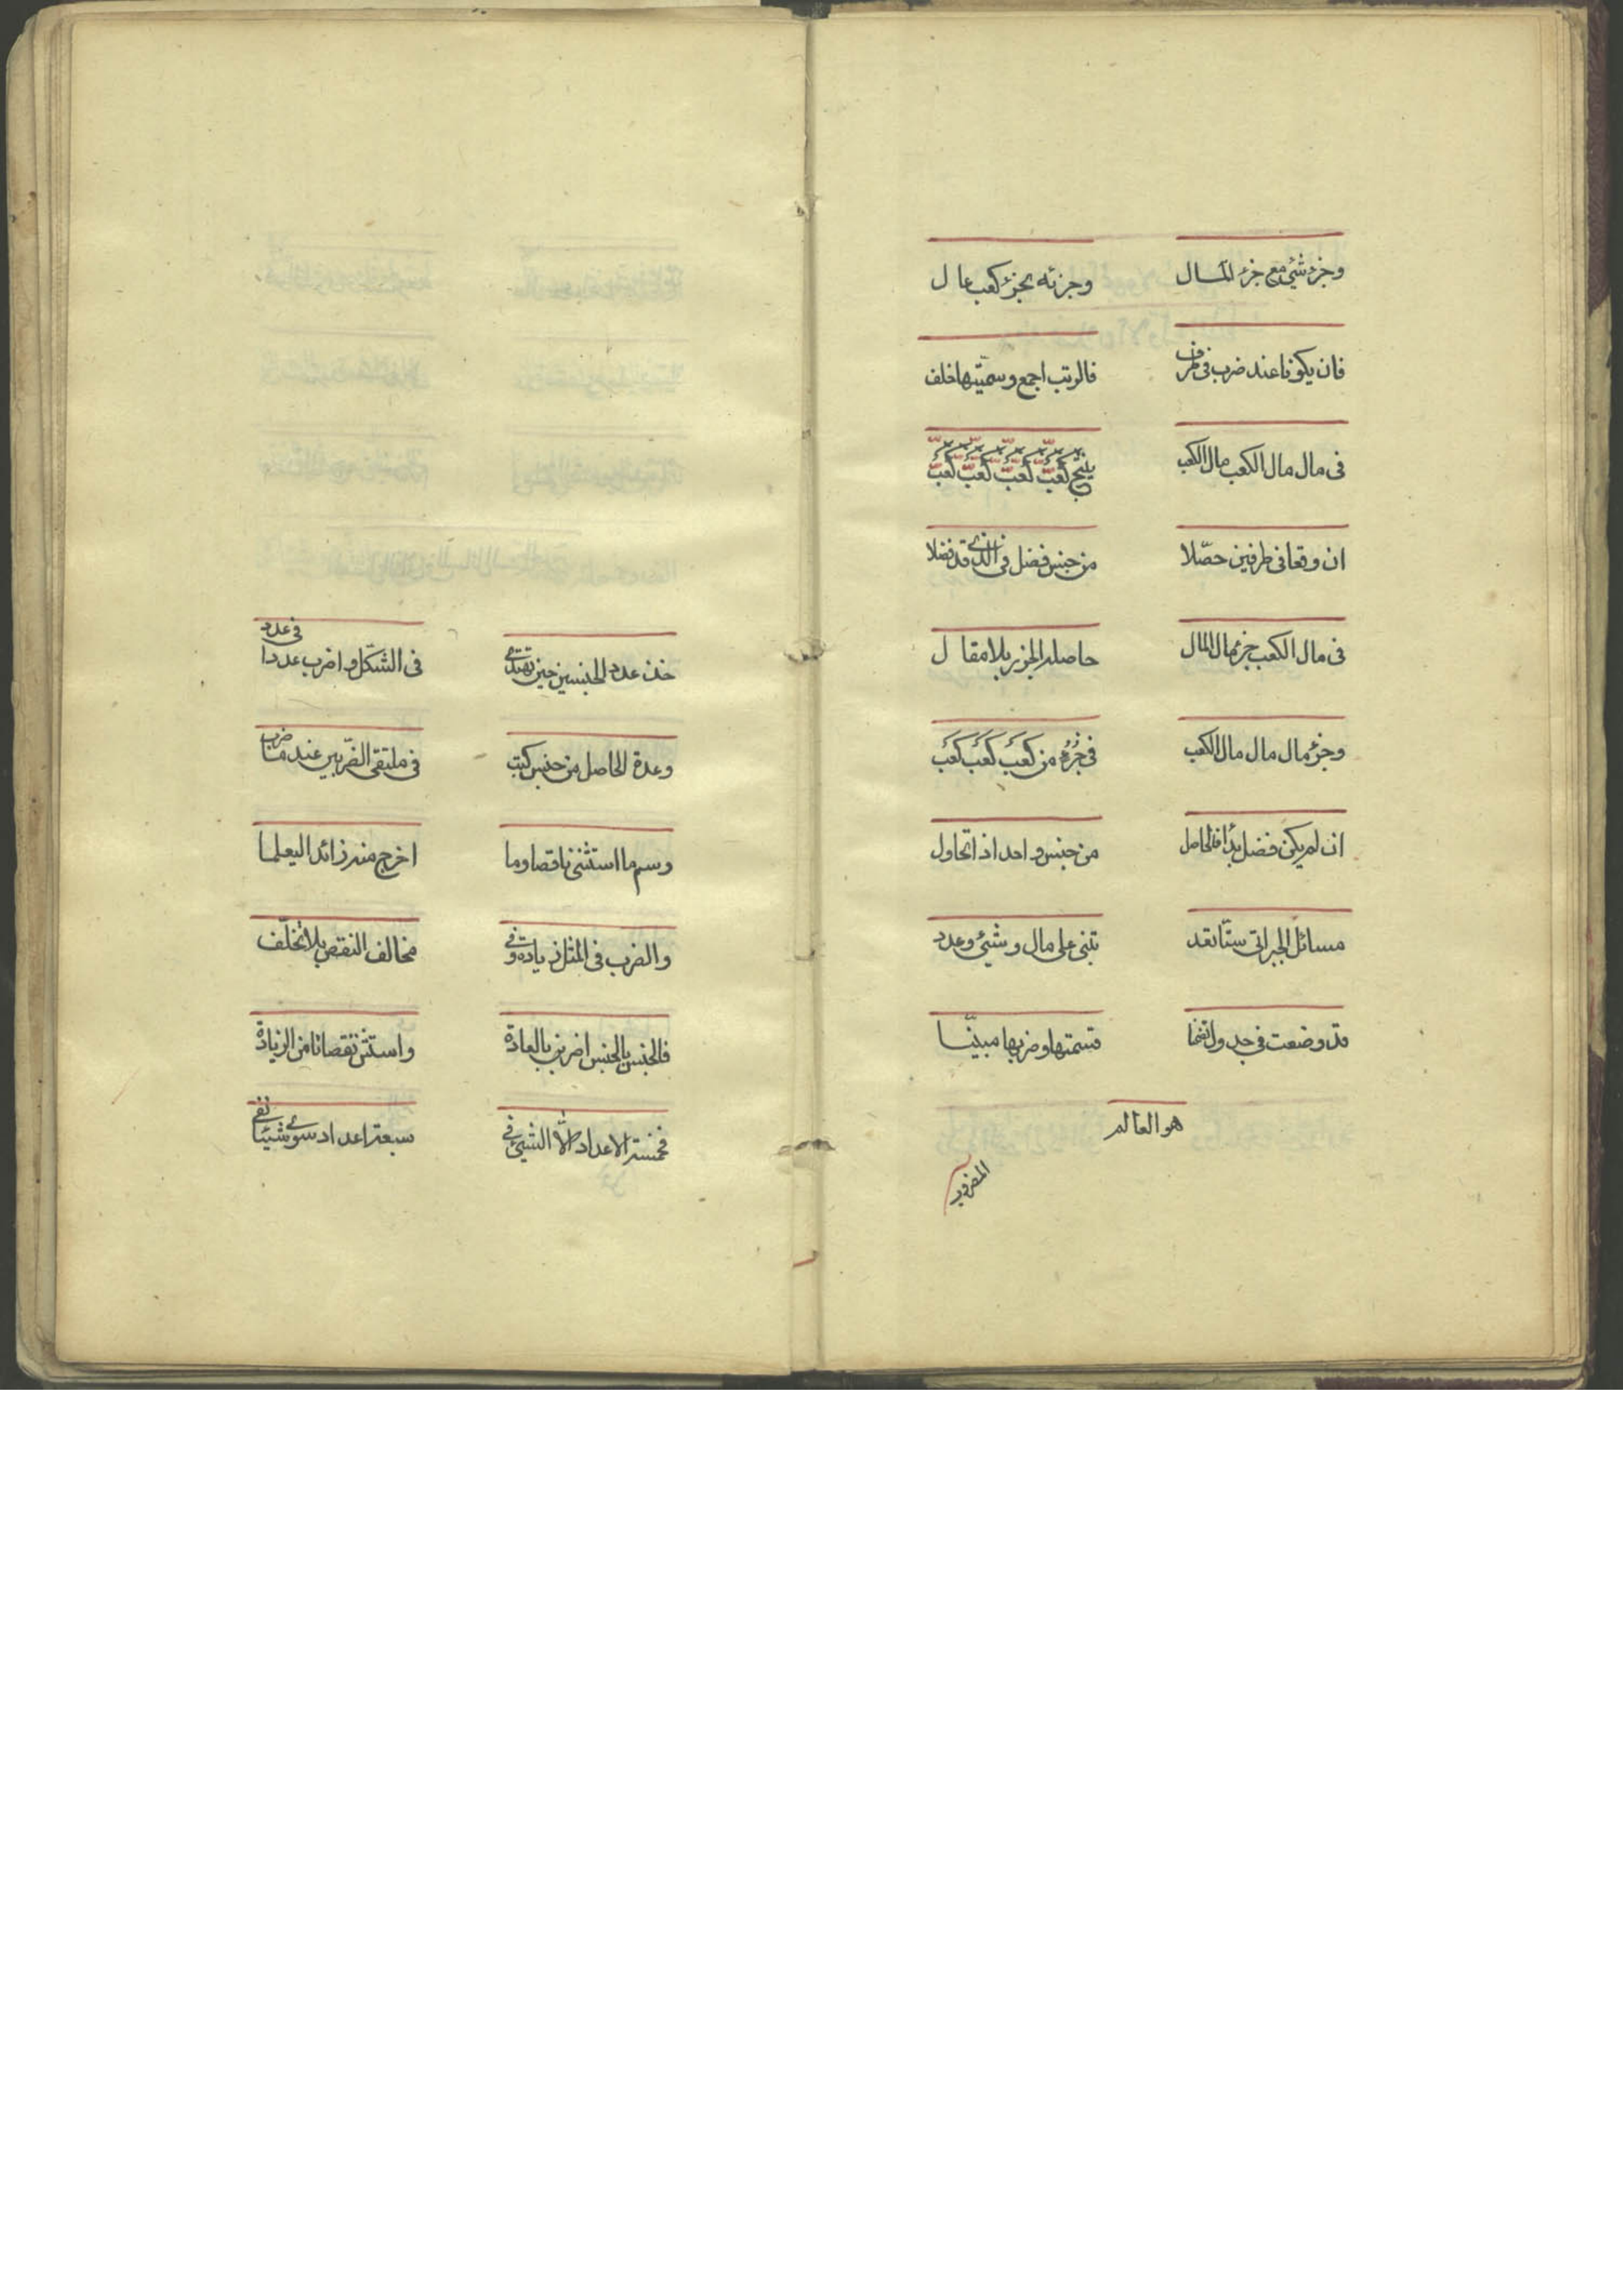 وجزء شئ مع جزء المال وجزئه بجزء كعب عال
فان يكونا عند ضرب فى طرف فالرتب اجمع وسميّتها خلف
فى مال مال الكعب مال الكعب ينتج كعب كعب كعب كعب كعب
ان وقعا فى طرفين حصّلا من جنس فضل فى الذى قد فضلا
فى مال الكعب جزء مال المال حاصله الجزر بلا مقال
وجزء مال مال مال الكعب فى جزءه من كعب كعب كعب
ان لم يكن فضل بدا فالحاصل من جنس واحد اذ اتحاول
مسائل الجبر اتى ستّا تعد تبنى على مال وشئ وعدد
قد وضعت فى جدول قسمتها وضربها مبيّنا
هو العالم
المضروب
خذ عدد الجنسين حين تهتدى فى الشكل واضرب عددا فى عدد
وعدة الحاصل من جنس كتب فى ملتقى الضربين عند ما ضرب
وسم ما استثنى ناقصا وما اخرج منه زائدا ليعلما
والضرب فى المثل زيادة وفى مخالف النقص بلا تخلّف
فالجنس بالجنس اضربن بالعادة واستثن نقصانا من الزيادة
فخمسة الاعداد الّا الشئ فى سبعة اعداد سوى شئ